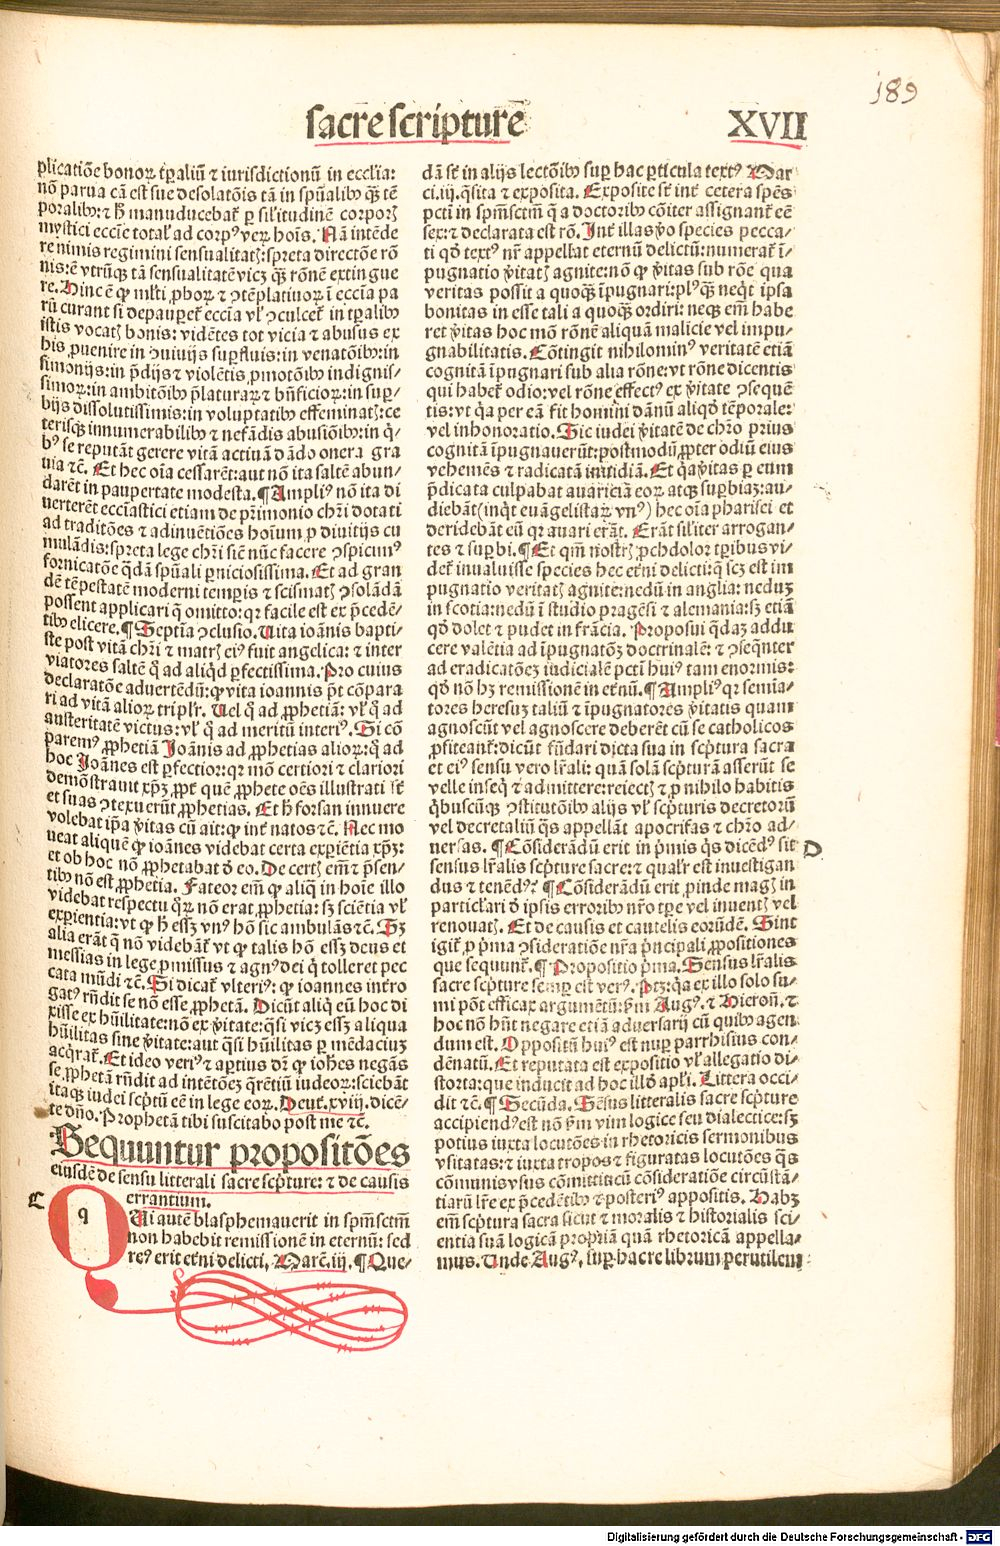 189
sacrē scripturē
XVII
plicatiōe bonoꝝ tꝑaliū ⁊ iurisdictionū in ecclīa:
nō parua cā est sue desolatōis tā in spūalibꝰ qͣꝫ tē
poralibꝰ: ⁊ hͦ manuducebat᷑ ꝑ sil'itudinē corporꝭ
mystici ecclīe total' ad corpꝰ veꝝ hoīs. Nā intēde
re nimis regimini sensualitatꝭ: spreta directōe rō
nis: ē vtrūqꝫ tā sensualitatē vicꝫ qͣꝫ rōnē extingue
re. Hinc ē ꝙ ml'ti ꝓboꝝ ⁊ ꝯtēplatiuoꝝ ī ecclīa pa
rū curant si depauꝑet᷑ ecclīa vl' ꝯculcet᷑ in tꝑalibꝰ
istis vocatꝭ bonis: vidētes tot vicia ⁊ abusus ex
his ꝓuenire in ꝯuiuijs suꝑfluis: in venatōibꝰ: in
simonijs: in p̄dijs ⁊ violētis ꝓmotōibꝰ indignis-
simoꝝ: in ambitōibꝰ p̄laturaꝝ ⁊ bn̄ficioꝝ: in suꝑ-
bijs dissolutissimis: in voluptatibꝰ effeminatꝭ: ce
terisqꝫ innumerabilibꝰ ⁊ nefādis abusiōibꝰ: in q̄-
bꝰ se reputāt gerere vitā actiuā dādo onera gra
uia ⁊c̄. Et hec oīa cessarēt: aut nō ita saltē abun-
darēt in paupertate modesta. ¶ Ampliꝰ nō ita di
uerterēt ecclīastici etiam de pr̄imonio chr̄i dotati
ad traditōes ⁊ adinuētiōes hoīum ꝓ diuitijs cu
mulādis: spreta lege chr̄i sic̄ nūc facere ꝯspicimꝰ
fornicatōe qͣdā spūali ꝑniciosissima. Et ad gran
dē tēpestatē moderni tempis ⁊ scismatꝭ ꝯsolādā
possent applicari q̄ omitto: qꝛ facile est ex p̄cedē-
tibꝰ elicere. ¶ Septīa ꝯclusio. Uita ioānis bapti-
ste post vitā chr̄i ⁊ matrꝭ eiꝰ fuit angelica: ⁊ inter
viatores saltē qͦ ad aliqͥd ꝑfectissima. Pro cuius
declaratōe aduertēdū: ꝙ vita ioannis p̄t cōpara
ri ad vitā alioꝝ tripl'r. Uel qͦ ad ꝓphetiā: vl' qͦ ad
austeritatē victus: vl' qͦ ad meritū interiꝰ. Si cō
paremꝰ ꝓphetiā Joānis ad ꝓphetias alioꝝ: qͦ ad
hoc Joānes est ꝑfectior: qꝛ mō certiori ⁊ clariori
demōstrauit xp̄ꝫ ꝓpt᷑ quē ꝓphete oēs illustrati st̄
et suas ꝯtexuerūt ꝓphetias. Et hͦ forsan innuere
volebat ip̄a vītas cū ait: ꝙ int᷑ natos ⁊c̄. Nec mo
ueat aliquē ꝙ ioānes videbat certa exꝑiētia xp̄ꝫ:
et ob hoc nō ꝓphetabat ꝺ̄ eo. De certꝭ em̄ ⁊ p̄sen-
tibꝰ nō est ꝓphetia. Fateor em̄ ꝙ aliqͥ in hoīe illo
videbat respectu qͣꝝ nō erat ꝓphetia: sꝫ sciētia vl'
exꝑientia: vt ꝙ hͦ essꝫ vnꝰ hō sic ambulās ⁊c̄. Sꝫ
alia erāt q̄ nō videbāt᷑ vt ꝙ talis hō essꝫ deus et
messias in lege ꝓmissus ⁊ agnꝰ dei qͥ tolleret pec
cata mūdi ⁊c̄. Si dicat᷑ vlteriꝰ: ꝙ ioannes intro
gatꝰ rn̄dit se nō esse ꝓphetā. Dicūt aliqͥ eū hoc di
xisse ex hūilitate: nō ex v̄itate: qͣsi vicꝫ essꝫ aliqua
hūilitas sine v̄itate: aut qͣsi hūilitas ꝑ mēdaciuꝫ
acqͥrat᷑. Et ideo veriꝰ ⁊ aꝑtius dr̄ ꝙ ioh̄es negās
se ꝓphetā rn̄dit ad intētōeꝫ qͦrētiū iudeoꝝ: sciebāt
itaqꝫ iudei scp̄tū eē in lege eoꝝ. Deut̄. xviij. dicē-
te dn̄o. Prophetā tibi suscitabo post me ⁊c̄.
Sequuntur propositōes
eiusdē de sensu litterali sacre scp̄ture: ⁊ de causis
errantium.
C
q
Ui autē blasphemauerit in spm̄ sctm̄
non habebit remissionē in eternū: sed
reꝰ erit et̄ni delicti. Marc̄. iij. ¶ Que-
dā st̄ in alijs lectōibꝰ suꝑ hac ꝑticula textꝰ Mar
ci. iij. qͣsita ⁊ exposita. Exposite st̄ int᷑ cetera spēs
pctī in spm̄ sctm̄ q̄ a doctoribꝰ cōiter assignant᷑ eē
sex: ⁊ declarata est rō. Int᷑ illas v̄o species pecca-
ti qd̄ textꝰ nr̄ appellat eternū delictū: numerat᷑ ī-
pugnatio v̄itatꝭ agnite: nō ꝙ v̄itas sub rōe qua
veritas possit a quoqͣꝫ īpugnari: plꝰ qͣꝫ neqͥt ipsa
bonitas in esse tali a quoqͣꝫ odiri: neqꝫ em̄ habe
ret v̄itas hoc mō rōnē aliquā malicie vel impu-
gnabilitatis. Cōtingit nihilominꝰ veritatē etiā
cognitā īpugnari sub alia rōne: vt rōne dicentis
qui habet᷑ odio: vel rōne effectꝰ ex v̄itate ꝯsequē
tis: vt qͥa per eā fit homini dānū aliqd̄ tēporale:
vel inhonoratio. Sic iudei v̄itatē de chr̄o prius
cognitā īpugnauerūt: postmodū ꝓpter odiū eius
vehemēs ⁊ radicatā inuidiā. Et qͥa v̄itas ꝑ eum
p̄dicata culpabat auariciā eoꝝ atqꝫ suꝑbiaꝫ: au-
diebāt (inqͥt euāgelistaꝝ vnꝰ) hec oīa pharisei et
deridebāt eū qꝛ auari erāt. Erāt sil'iter arrogan-
tes ⁊ suꝑbi. ¶ Et qm̄ nostrꝭ ꝓchdolor tꝑibus vi-
det᷑ inualuisse species hec et̄ni delicti: q̄ scꝫ est im
pugnatio veritatꝭ agnite: nedū in anglia: neduꝫ
in scotia: nedū ī studio pragēsi ⁊ alemania: sꝫ etiā
qd̄ dolet ⁊ pudet in frācia. Proposui q̄daꝫ addu
cere valētia ad īpugnatōꝫ doctrinalē: ⁊ ꝯseqn̄ter
ad eradicatōeꝫ iudicialē pctī huiꝰ tam enormis:
qd̄ nō hꝫ remissionē in et̄nū. ¶ Ampliꝰ qꝛ semīa-
tores heresuꝫ taliū ⁊ īpugnatores v̄itatis quam
agnoscūt vel agnoscere deberēt cū se catholicos
ꝓfiteant᷑: dicūt fūdari dicta sua in scp̄tura sacra
et eiꝰ sensu vero lr̄ali: quā solā scp̄turā asserūt se
velle inseqͥ ⁊ admittere: reiectꝭ ⁊ ꝓ nihilo habitis
qͥbuscūqꝫ ꝯstitutōibꝰ alijs vl' scp̄turis decretorū
vel decretaliū qͣs appellāt apocrifas ⁊ chr̄o ad-
uersas. ¶ Cōsiderādū erit in p̄mis qͥs dicēdꝰ sit
D
sensus lr̄alis scp̄ture sacre: ⁊ qualr̄ est inuestigan
dus ⁊ tenēdꝰ. ¶ Cōsiderādū erit ꝓinde magꝭ in
particl'ari ꝺ̄ ipsis erroribꝰ nr̄o tꝑe vel inuentꝭ vel
renouatꝭ. Et de causis et cautelis eorūdē. Sint
igit᷑ ꝓ p̄ma ꝯsideratiōe nr̄a p̄ncipali ꝓpositiones
que sequunt᷑. ¶ Propositio p̄ma. Sensus lr̄alis
sacre scp̄ture semꝑ est verꝰ. Ptꝫ: qͥa ex illo solo su-
mi pōt efficax argumētū: fm̄ Augꝰ. ⁊ Hieron̄. ⁊
hoc nō hn̄t negare etiā aduersarij cū quibꝰ agen
dum est. Oppositū huiꝰ est nuꝑ parrhisius con-
dēnatū. Et reputata est expositio vl' allegatio di-
storta: que inducit ad hoc illd̄ apl'i. Littera occi-
dit ⁊c̄. ¶ Secūda. Sēsus litteralis sacre scp̄ture
accipiendꝰ est nō fm̄ vim logice seu dialectice: sꝫ
potius iuxta locutōes in rhetoricis sermonibus
vsitatas: ⁊ iuxta tropos ⁊ figuratas locutōes qͣs
cōmunis vsus cōmittit: cū cōsideratiōe circūstā-
tiarū lr̄e ex p̄cedētibꝰ ⁊ posteriꝰ appositis. Habꝫ
em̄ scp̄tura sacra sicut ⁊ moralis ⁊ historialis sci-
entia suā logicā propriā quā rhetoricā appella-
mus. Unde Augꝰ. super hac re librum perutilem
Digitalisierung gefördert durch die Deutsche Forschungsgemeinschaft - DFG